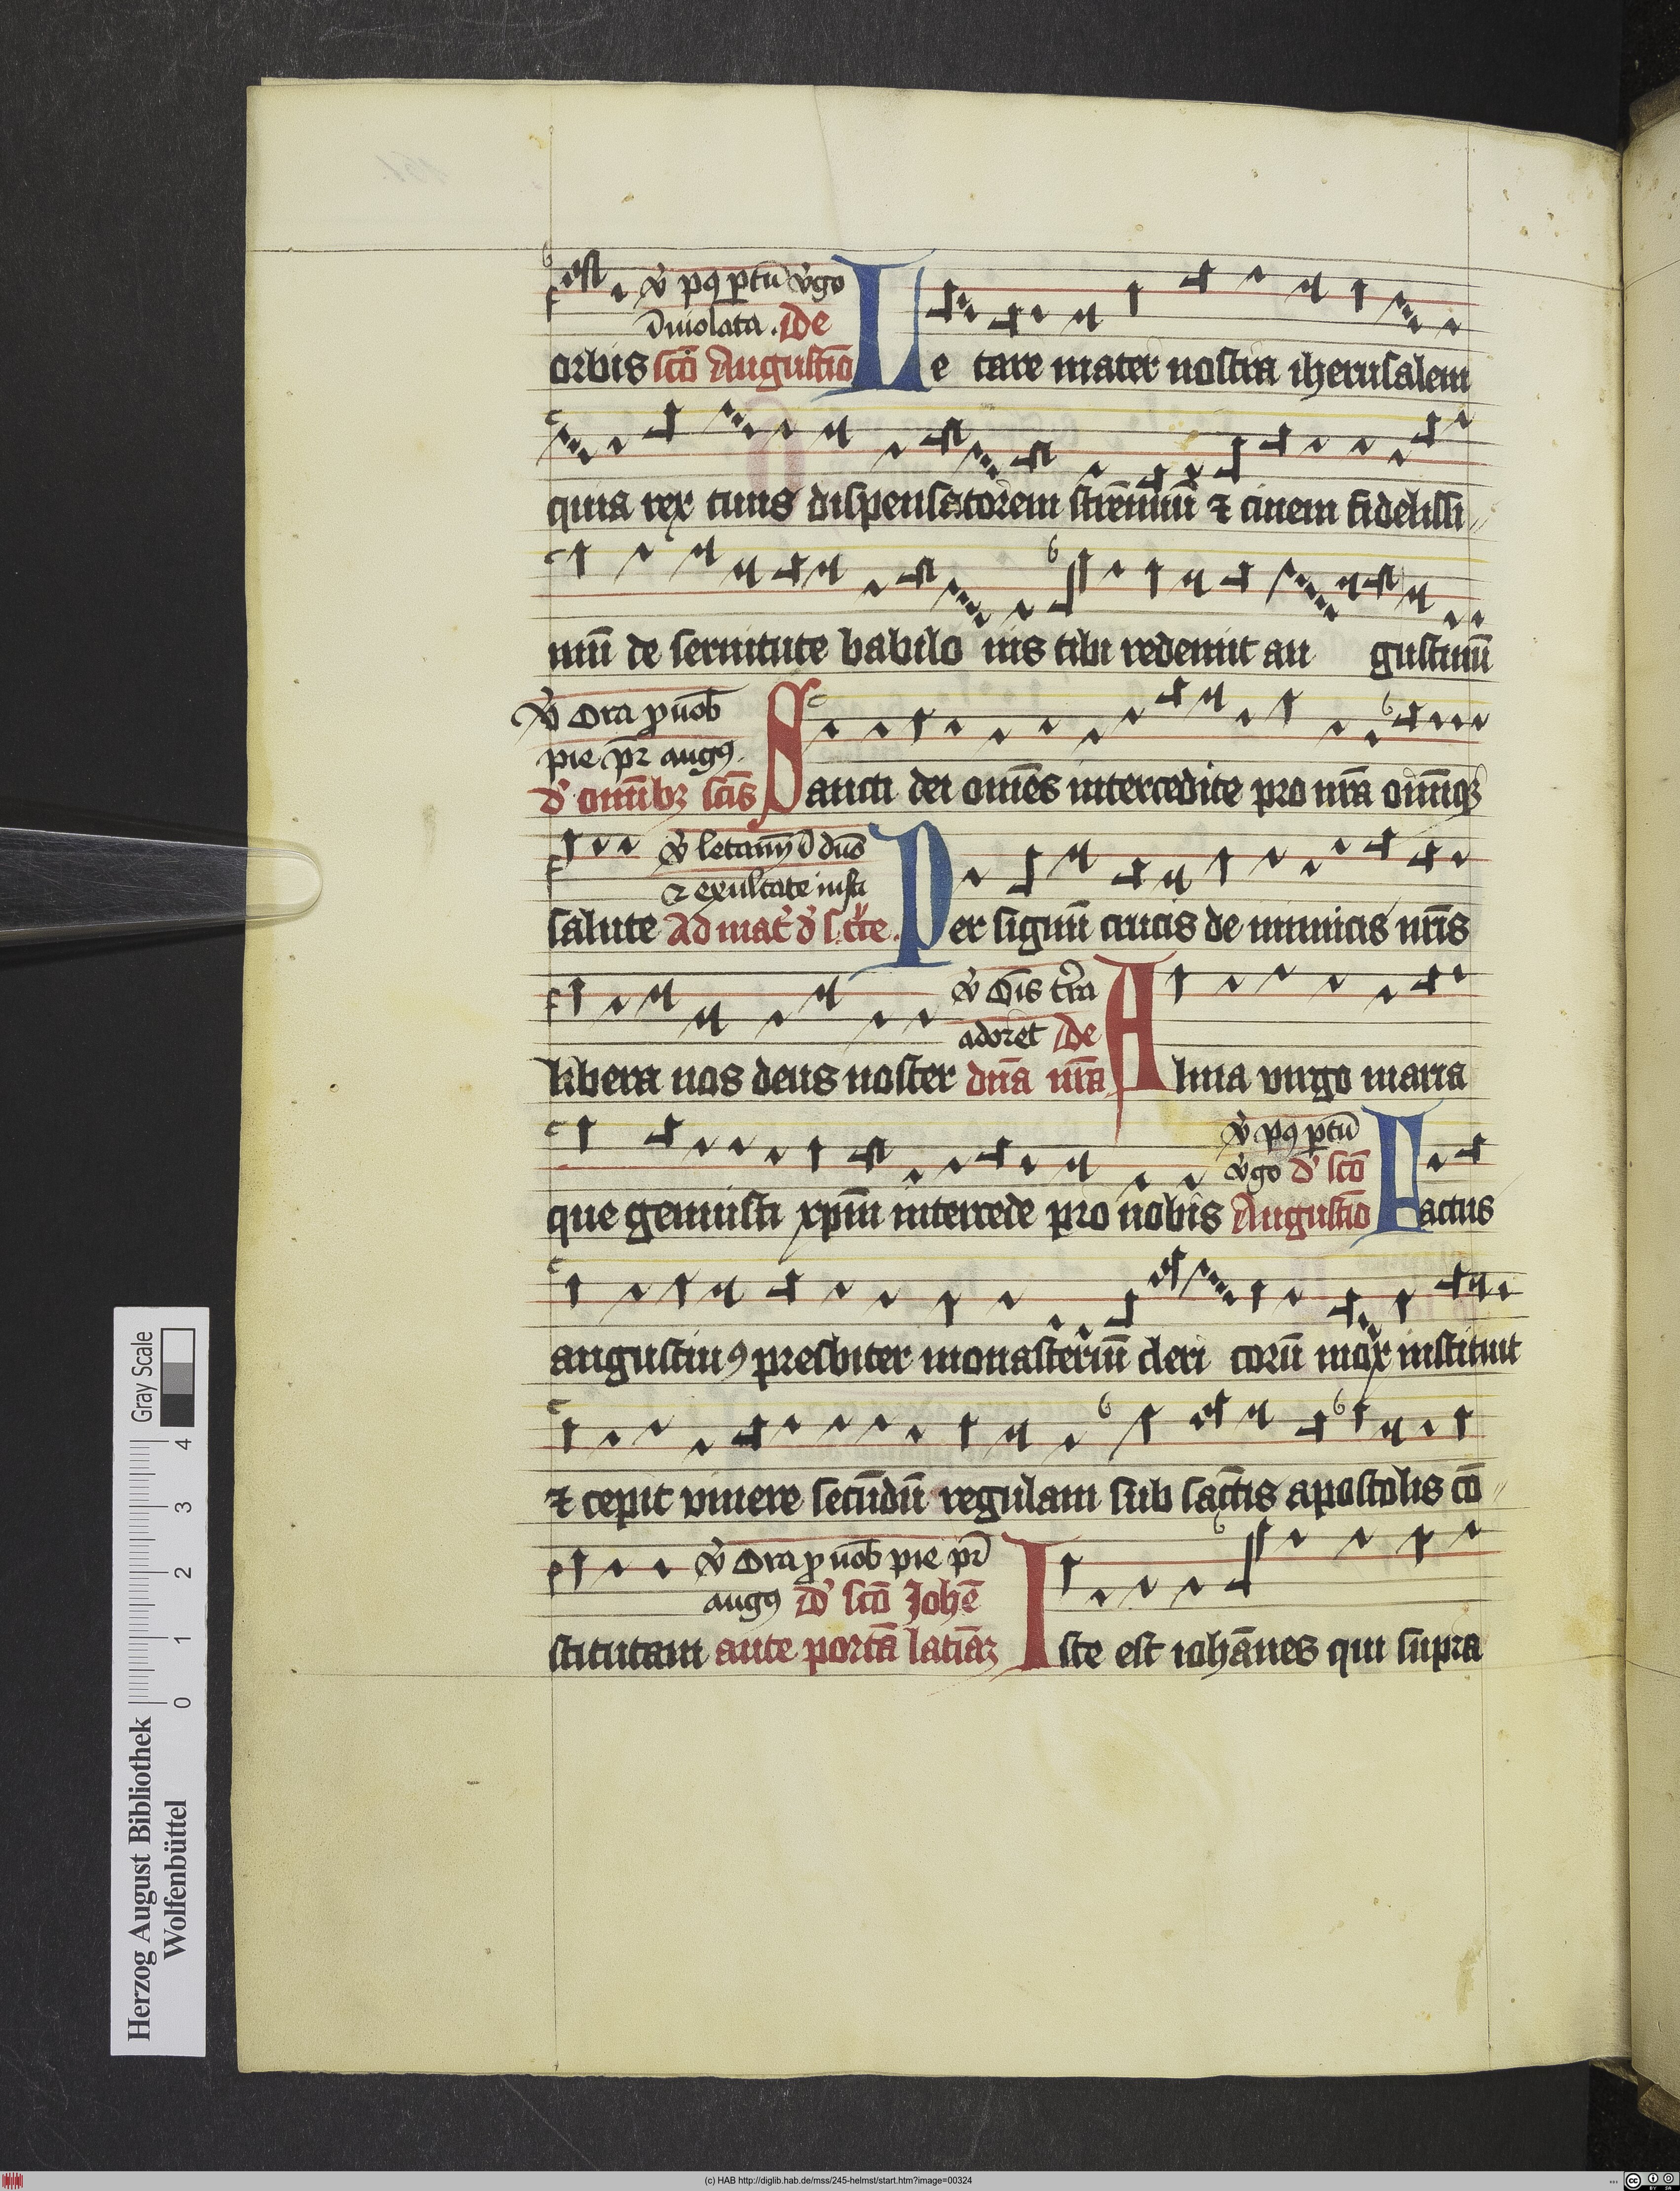 v̾ pꝯ ꝑtū v̾go
īuiolata . De
orbis scō Augustīo Le tare mater nostra iherusalem
quia rex tuus dispensatorem strēnuū ⁊ ciuem fidelissi//
mū de seruitute babilo nis tibi redemit au gustinū
v̾ Ora ꝓ nob̄
pie pr̄ augꝯ
d' om̄ibꝫ scīs Sancti dei om̄es intercedite pro nr̄a om̄iūqꝫ
& exultate iusti
salute Per signū crucis de inimicis nr̄is
v̾ Oīs t̄ra
adoret De
libera nos deus noster dn̄a nr̄a Alma virgo maria
v̾ pꝯ ꝑtū
v̾go d' scō
que genuisti xpm̄ intercede pro nobis Augustīo Factus
augustinꝯ presbiter monasteriū cleri corū mox instituit
⁊ cepit viuere secūdū regulam sub sāctis apostolis cō//
v̾ Ora ꝓ nob̄ pie pr̄
augꝯ D' scō Johē
stitutam ante portā latīaꝫ Iste est iohānes qui supra
Herzog August Bibliothek
Wolfenbüttel
0 1 2 3 4
Gray Scale
(c) HAB http://diglib.hab.de/mss/245-helmst/start.htm?image=00324